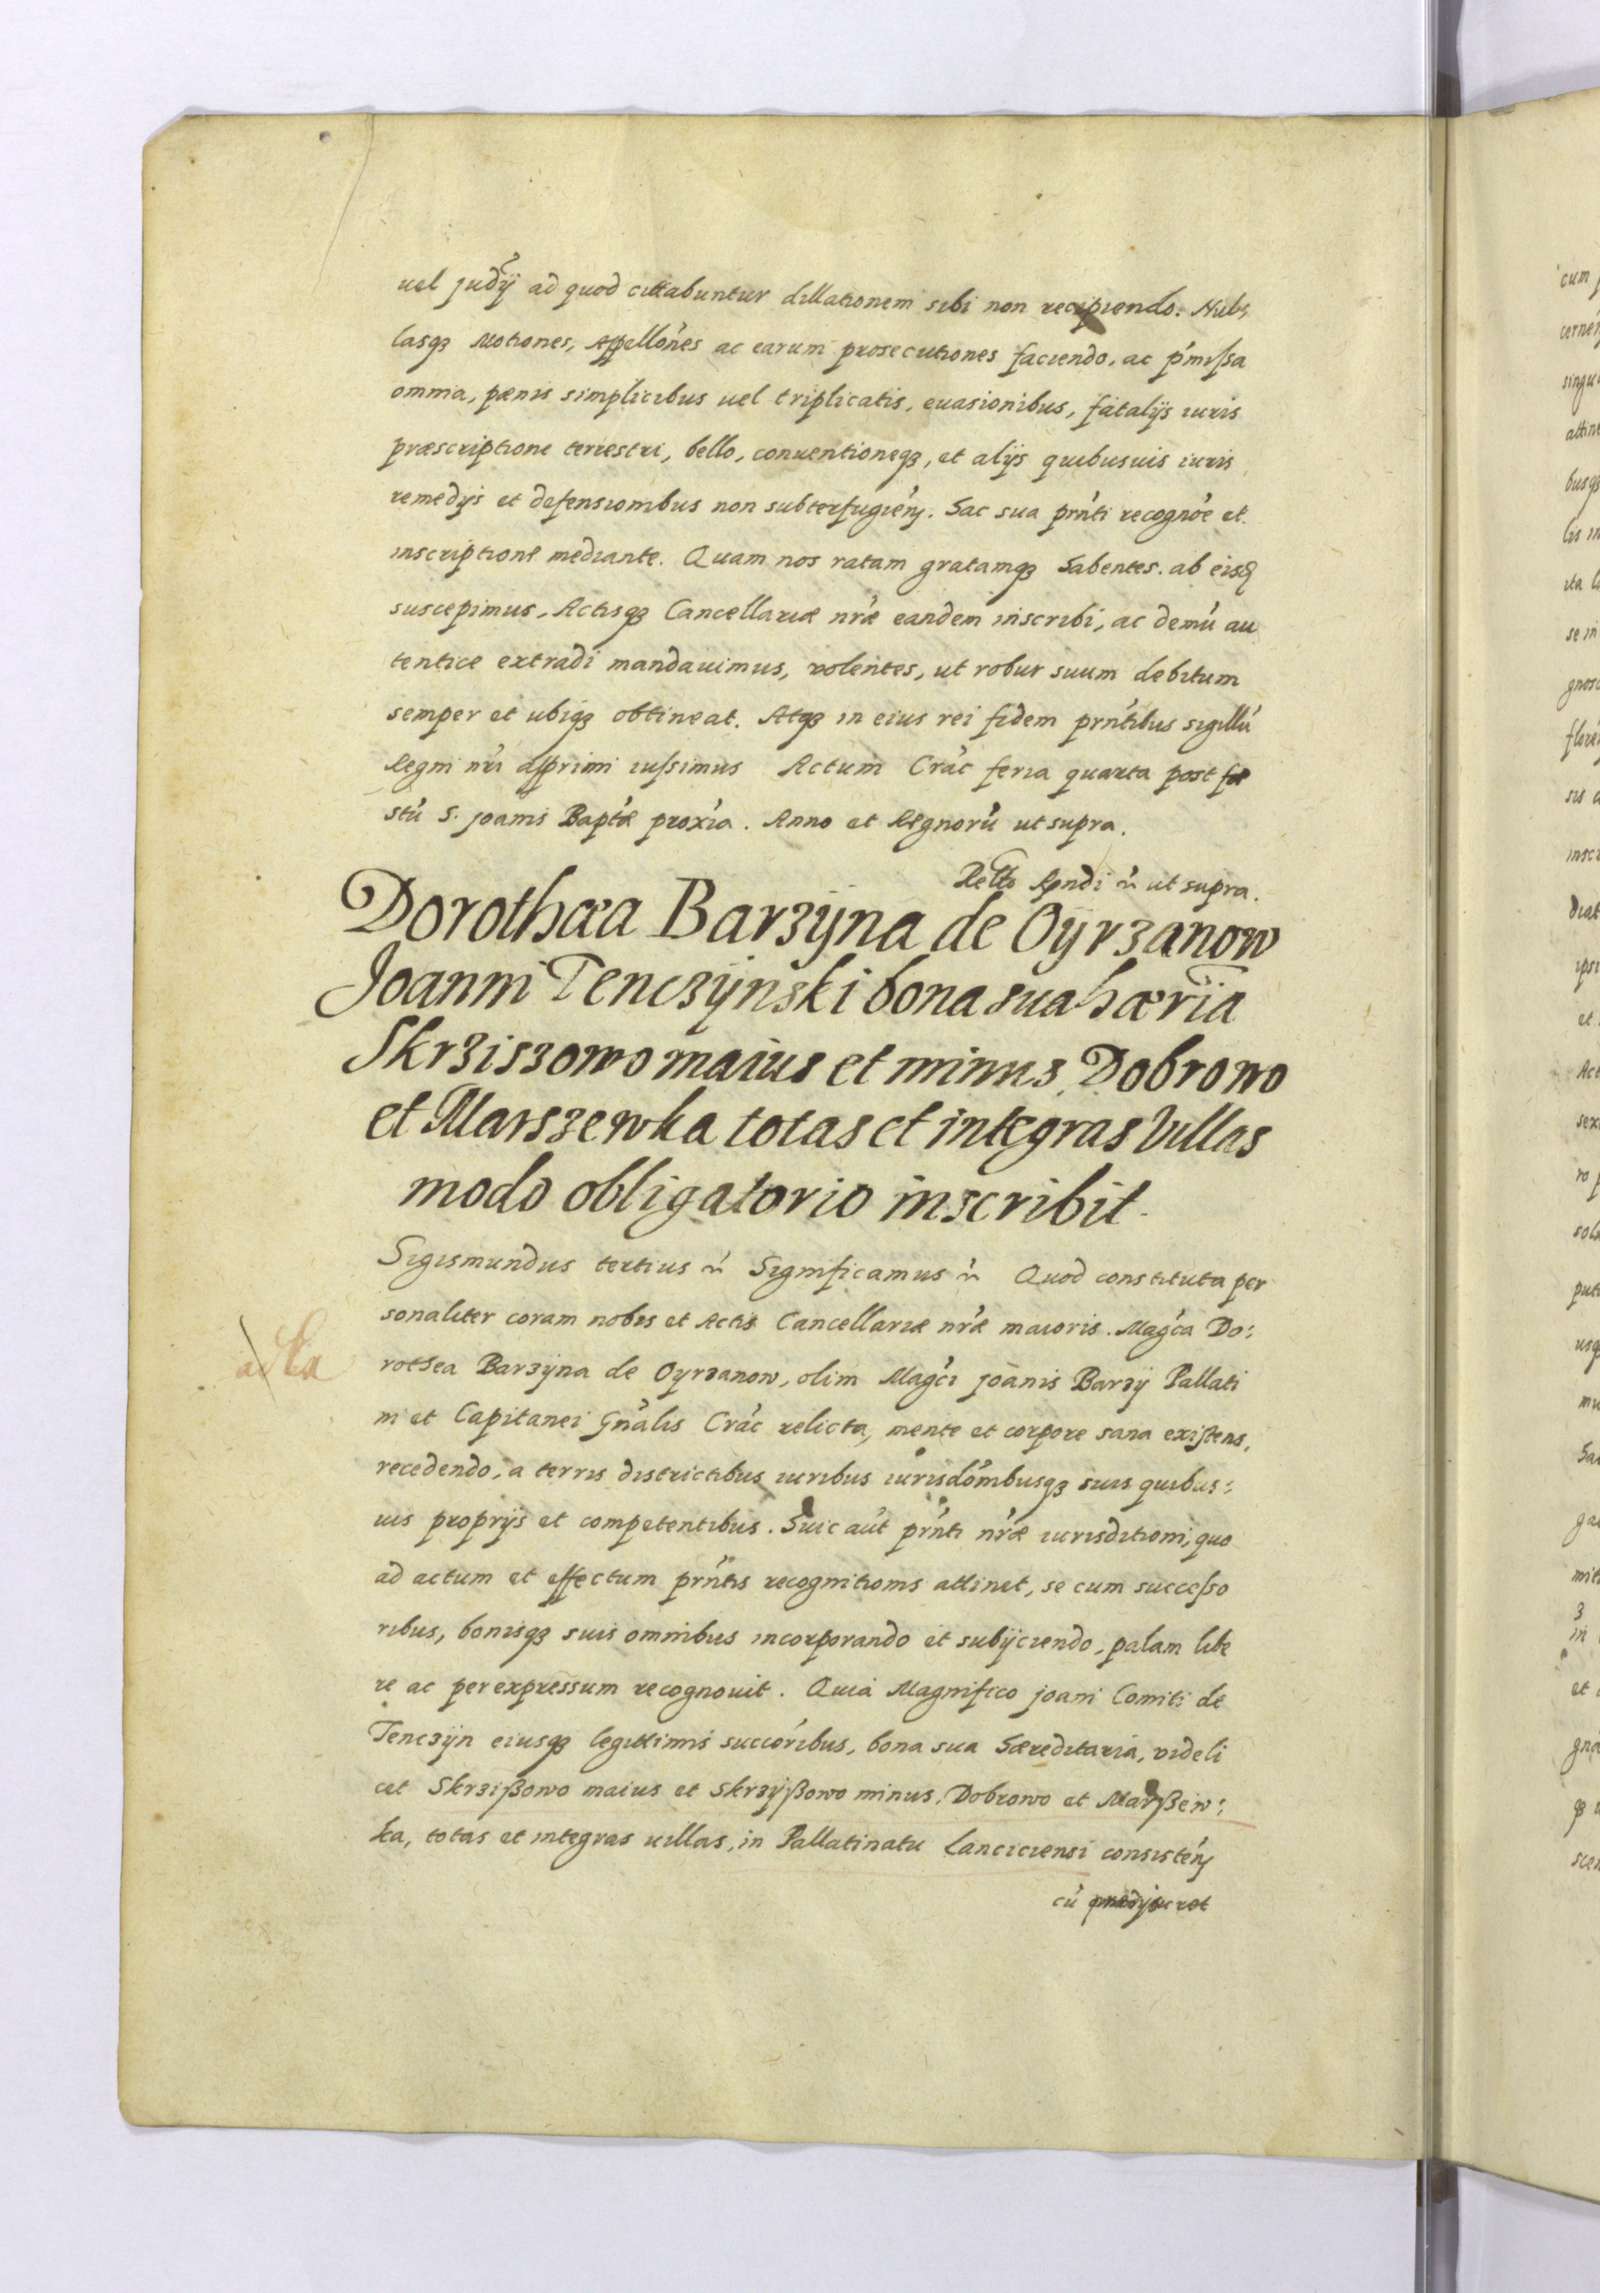 uel judÿ ad quod cittabuntur dillationem sibi non recipiendo. Nul⸗
lasqꝫ Motiones, Appellónes ac earum prosecutiones faciendo, ac ṕmiſsa
omnia, pænis simplicibus uel triplicatis, euasionibus, fatalÿs iuris
præscriptione terrestri, bello, conuentioneqꝫ, et alÿs quibusuis iuris
remedÿs et defensionibus non subterfugień. Hac sua prńti recognóe et
inscriptione mediante. Quam nos ratam gratamqꝫ habentes. ab eisd
suscepimus, Actisqꝫ Cancellariæ nŕæ eandem inscribi, ac demú au
tentice extradi mandauimus, volentes, ut robur suum debitum
semper et ubiqꝫ obtineat. Atqꝫ in eius rei fidem prńtibus sigillú
Regni nŕi apprimi iuſsimus Actum Crać feria quarta post fe
stú S. joanis Baptǽ proxía. Anno et Regnorú ut supra.
Rełło Rńdi ut supra.
Dorothæa Barzÿna de Oÿrzanow
Joanni Tenczÿnski bona sua hæria
Skrziszowo maius et minus Dobrowo
et Marszewka totas et integras Villas
modo obligatorio inscribit.
Sigismundus tertius Significamus Quod constituta per
sonaliter coram nobis et Actis Cancellariæ nŕæ maioris. Magća Do:
rothea Barzÿna de Oyrzanow, olim Magći joānis Barzÿ Pallati
ni et Capitanei Gńalis Crać relicta, mente et corpore sana exiſtens,
recedendo, a terris districtibus iuribus iurisdónibusqꝫ suis quibus:
uis proprÿs et competentibus. Huic aút prńti nŕæ iurisditioni, quo
ad actum et effectum prńtis recognitionis attinet, se cum succeſso
ribus, bonisqꝫ suis omnibus incorporando et subÿciendo, palam libe
re ac per expressum recognouit. Quia Magnifico joani Comiti de
Tenczÿn eiusqꝫ legittimis succóribus, bona sua Hæreditaria, videli
cet Skrzißowo maius et Skrzÿßowo minus, Dobrowo et Marßew:
ka, totas et integras uillas, in Pallatinatu Lanciciensi consisteń
cú